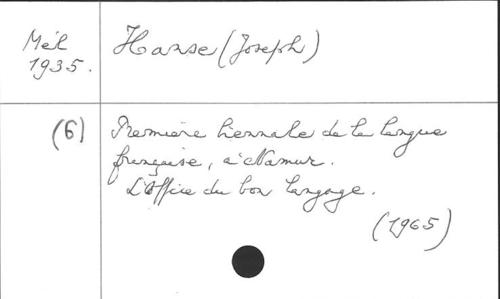 Mél
1935.
Hanse (Joseph)
(6)
Première biennale de la langue
française, à Namur.
L'Office du bon langage.
(1965)